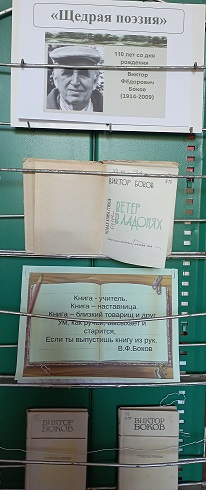 «Щедрая поэзия»
110 лет со дня
рождения
Виктор
Фёдорович
Боков
(1914-2009)
ВИКТОР БОКОВ
ВЕТЕР
В ЛАДОНЯХ
Книга - учитель.
Книга – наставница.
Книга – близкий товарищ и друг.
Ум, как ручей, высыхает и
старится,
Если ты выпустишь книгу из рук.
В.Ф.Боков
ВИКТОР
БОКОВ
ВИКТОР
БОКОВ